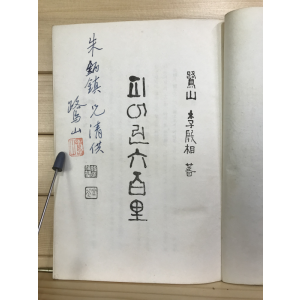 鷺山 李殷相 著
피어린六百里
朱 鎮 兄 清供
鷺山